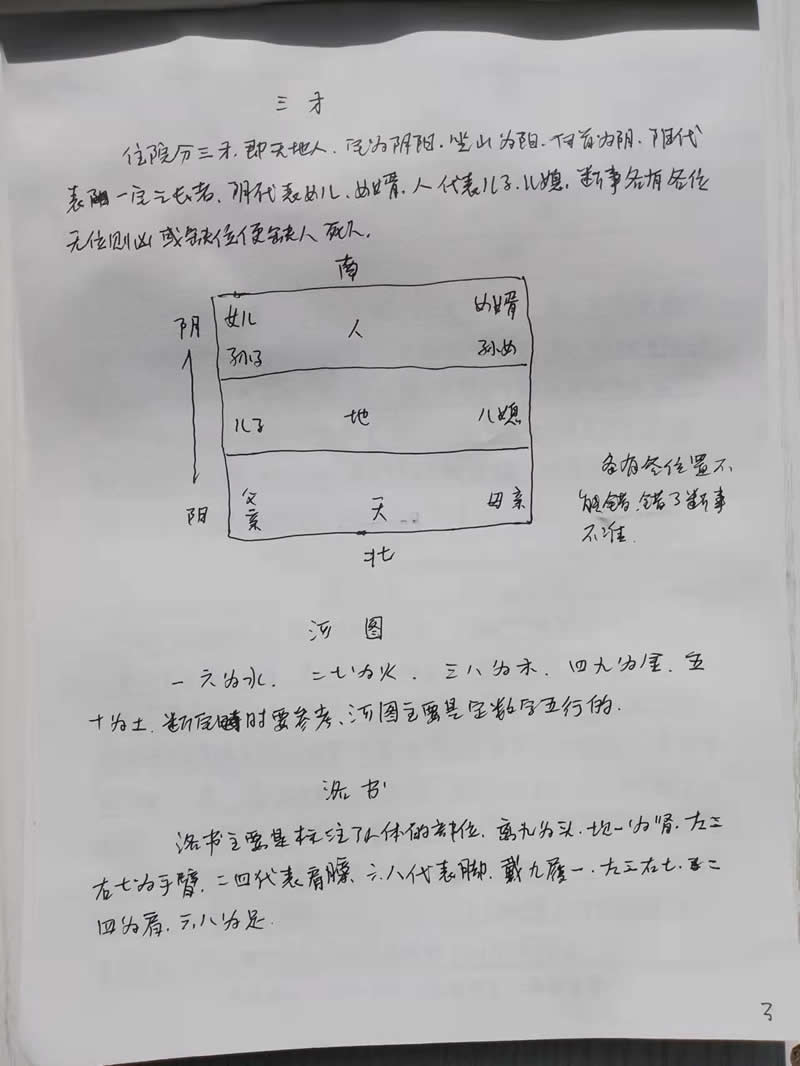 三才
住院分三才.即天地人.宅为阴阳.坐山为阳.何首为阴.阳代
表一宅之长者.阴代表女儿、女婿.人代表儿子.儿媳.断事各有各位
无位则凶或缺位便缺人死人.
南
阴 女儿 人 女婿
孙子 孙女
儿子 地 儿媳
阳 父亲 天 母亲
北
各有各位置不
能错.错了断事
不准.
河图
一六为水.二七为火.三八为木.四九为金.五
十为土.断宅时要参考、河图主要是定数字五行的.
洛书
洛书主要是标注了人体的部位.离九为头.坎一为肾.左三
右七为手臂.二四代表肩膀.六.八代表脚.戴九履一.左三右七.二
四为肩.六八为足.
3